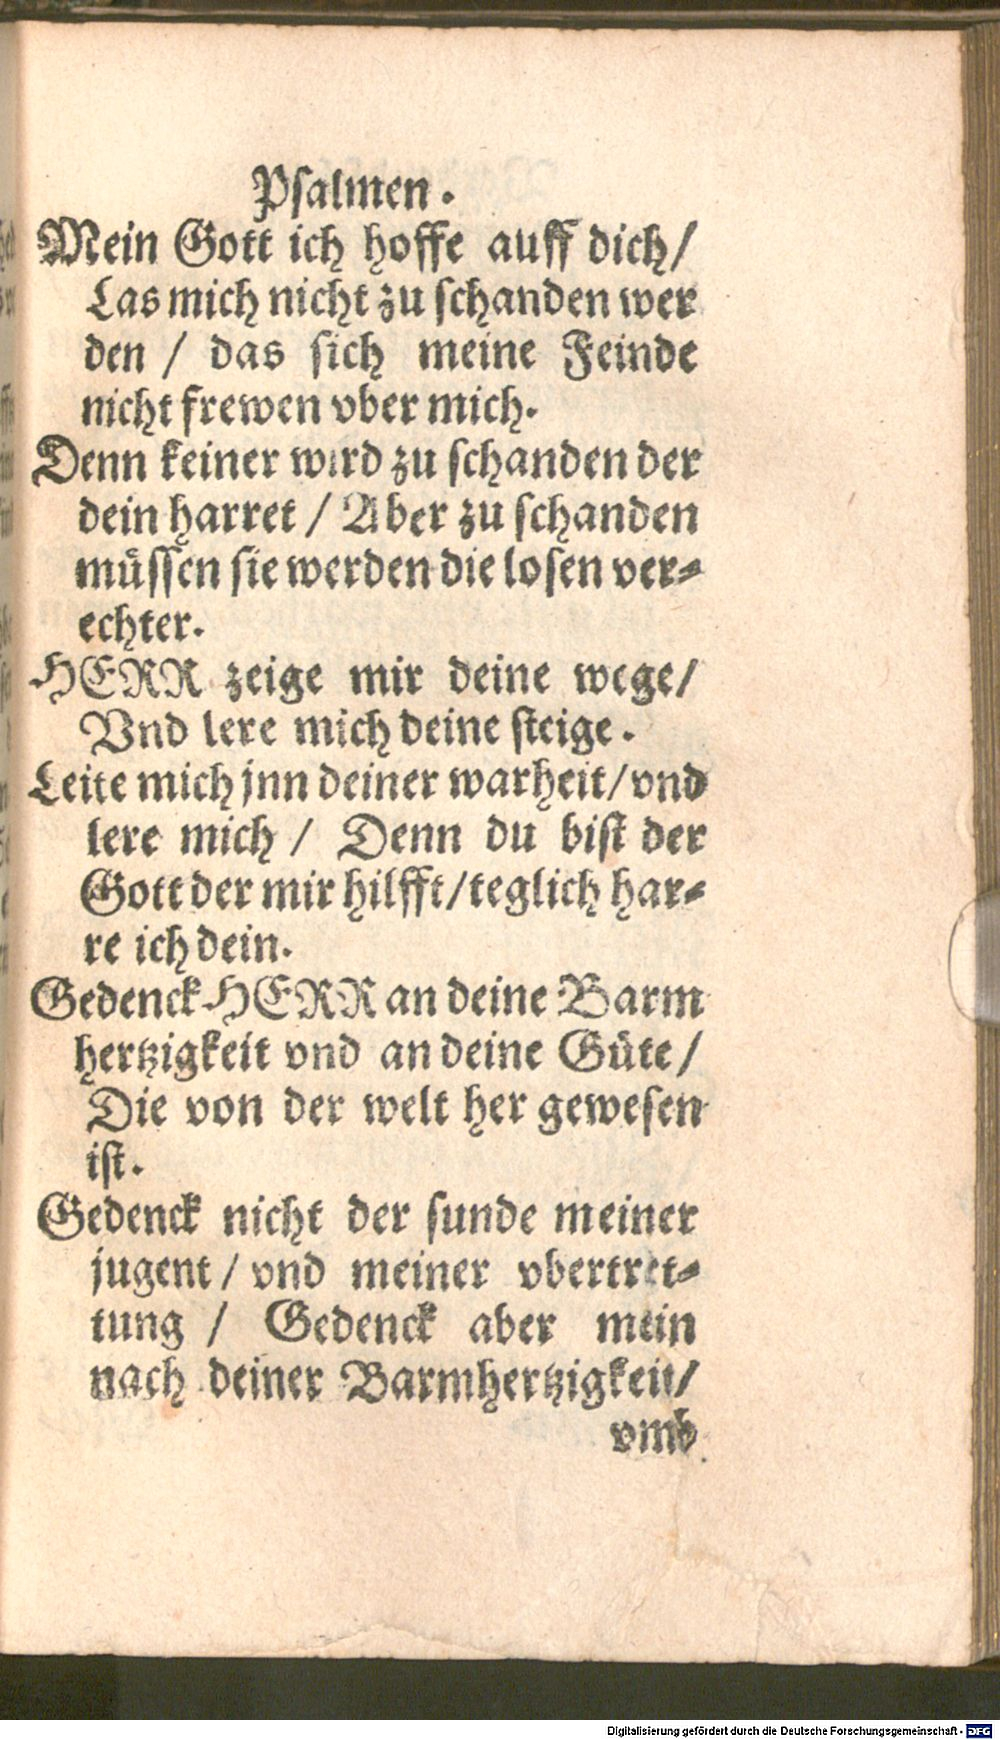 Psalmen.
Mein Gott ich hoffe auff dich/
Las mich nicht zu schanden wer
den / das sich meine Feinde
nicht frewen vber mich.
Denn keiner wird zu schanden der
dein harret / Aber zu schanden
müssen sie werden die losen ver⸗
echter.
HERR zeige mir deine wege/
Vnd lere mich deine steige.
Leite mich jnn deiner warheit/vnd
lere mich / Denn du bist der
Gott der mir hilfft/teglich har⸗
re ich dein.
Gedenck HERR an deine Barm
hertzigkeit vnd an deine Güte/
Die von der welt her gewesen
ist.
Gedenck nicht der sunde meiner
jugent / vnd meiner vbertret⸗
tung / Gedenck aber mein
nach deiner Barmhertzigkeit/
vmb
Digitalisierung gefördert durch die Deutsche Forschungsgemeinschaft - DFG